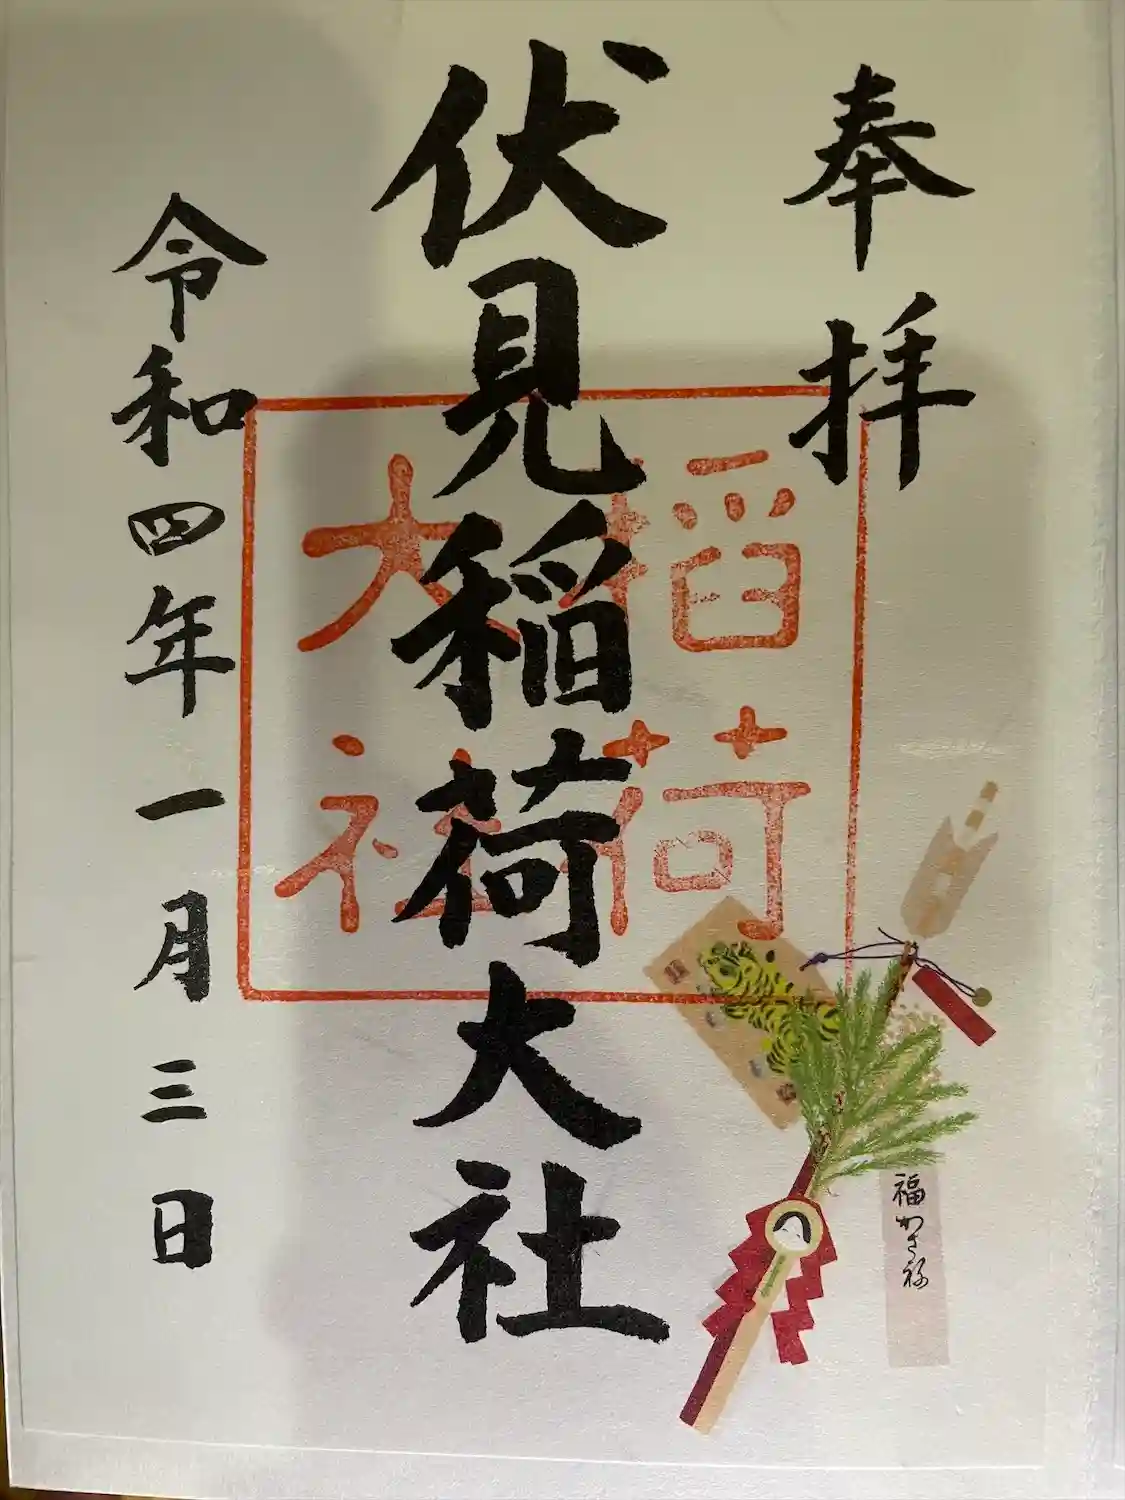 奉拝
伏見稲荷大社
稲荷
大社
令和四年一月三日
福かさね